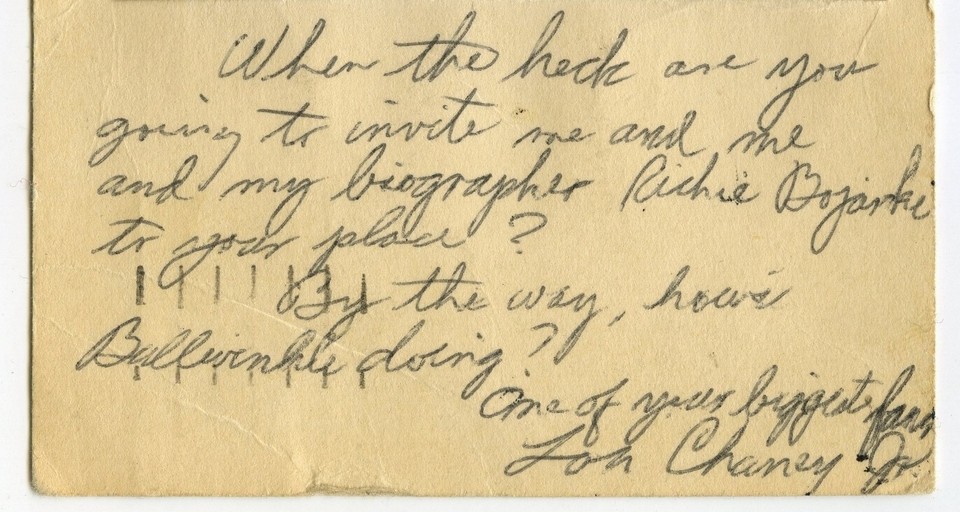 When the heck are you
going to invite me and me
and my biographer Richie Bojarski
to your place?
By the way, how's
Bullwinkle doing?
One of your biggest fans
Lon Chaney Jr.